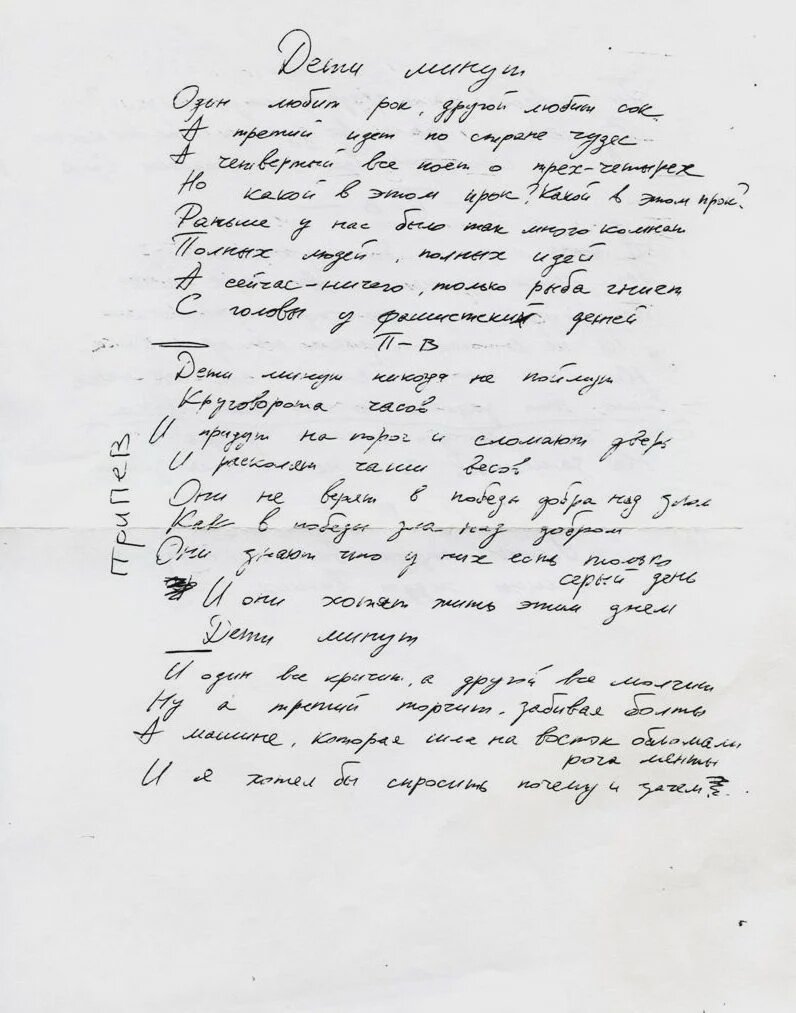 Дети минут
Один любит рок, другой любит сок
А третий идет по стране чудес
А четвертый все поет о трех-четырех
Но какой в этом прок? Какой в этом прок?
Раньше у нас было так много комнат
Полных людей, полных идей
А сейчас-ничего, только рыба гниет
С головы у фашистских детей
П-В
Дети минут никогда не поймут
Круговорота часов
И придут на порог и сломают дверь
И расколят чаши весов
Они не верят в победы добра над злом
Как в победы зла над добром
Они знают что у них есть только
серый день
И они хотят жить этим днем
Дети минут
ПРИПЕВ
И один все кричит, а другой все молчит
Ну а третий торчит, забивая болты
А машине, которая шла на восток обломали
рога менты
И я хотел бы спросить почему и зачем?..